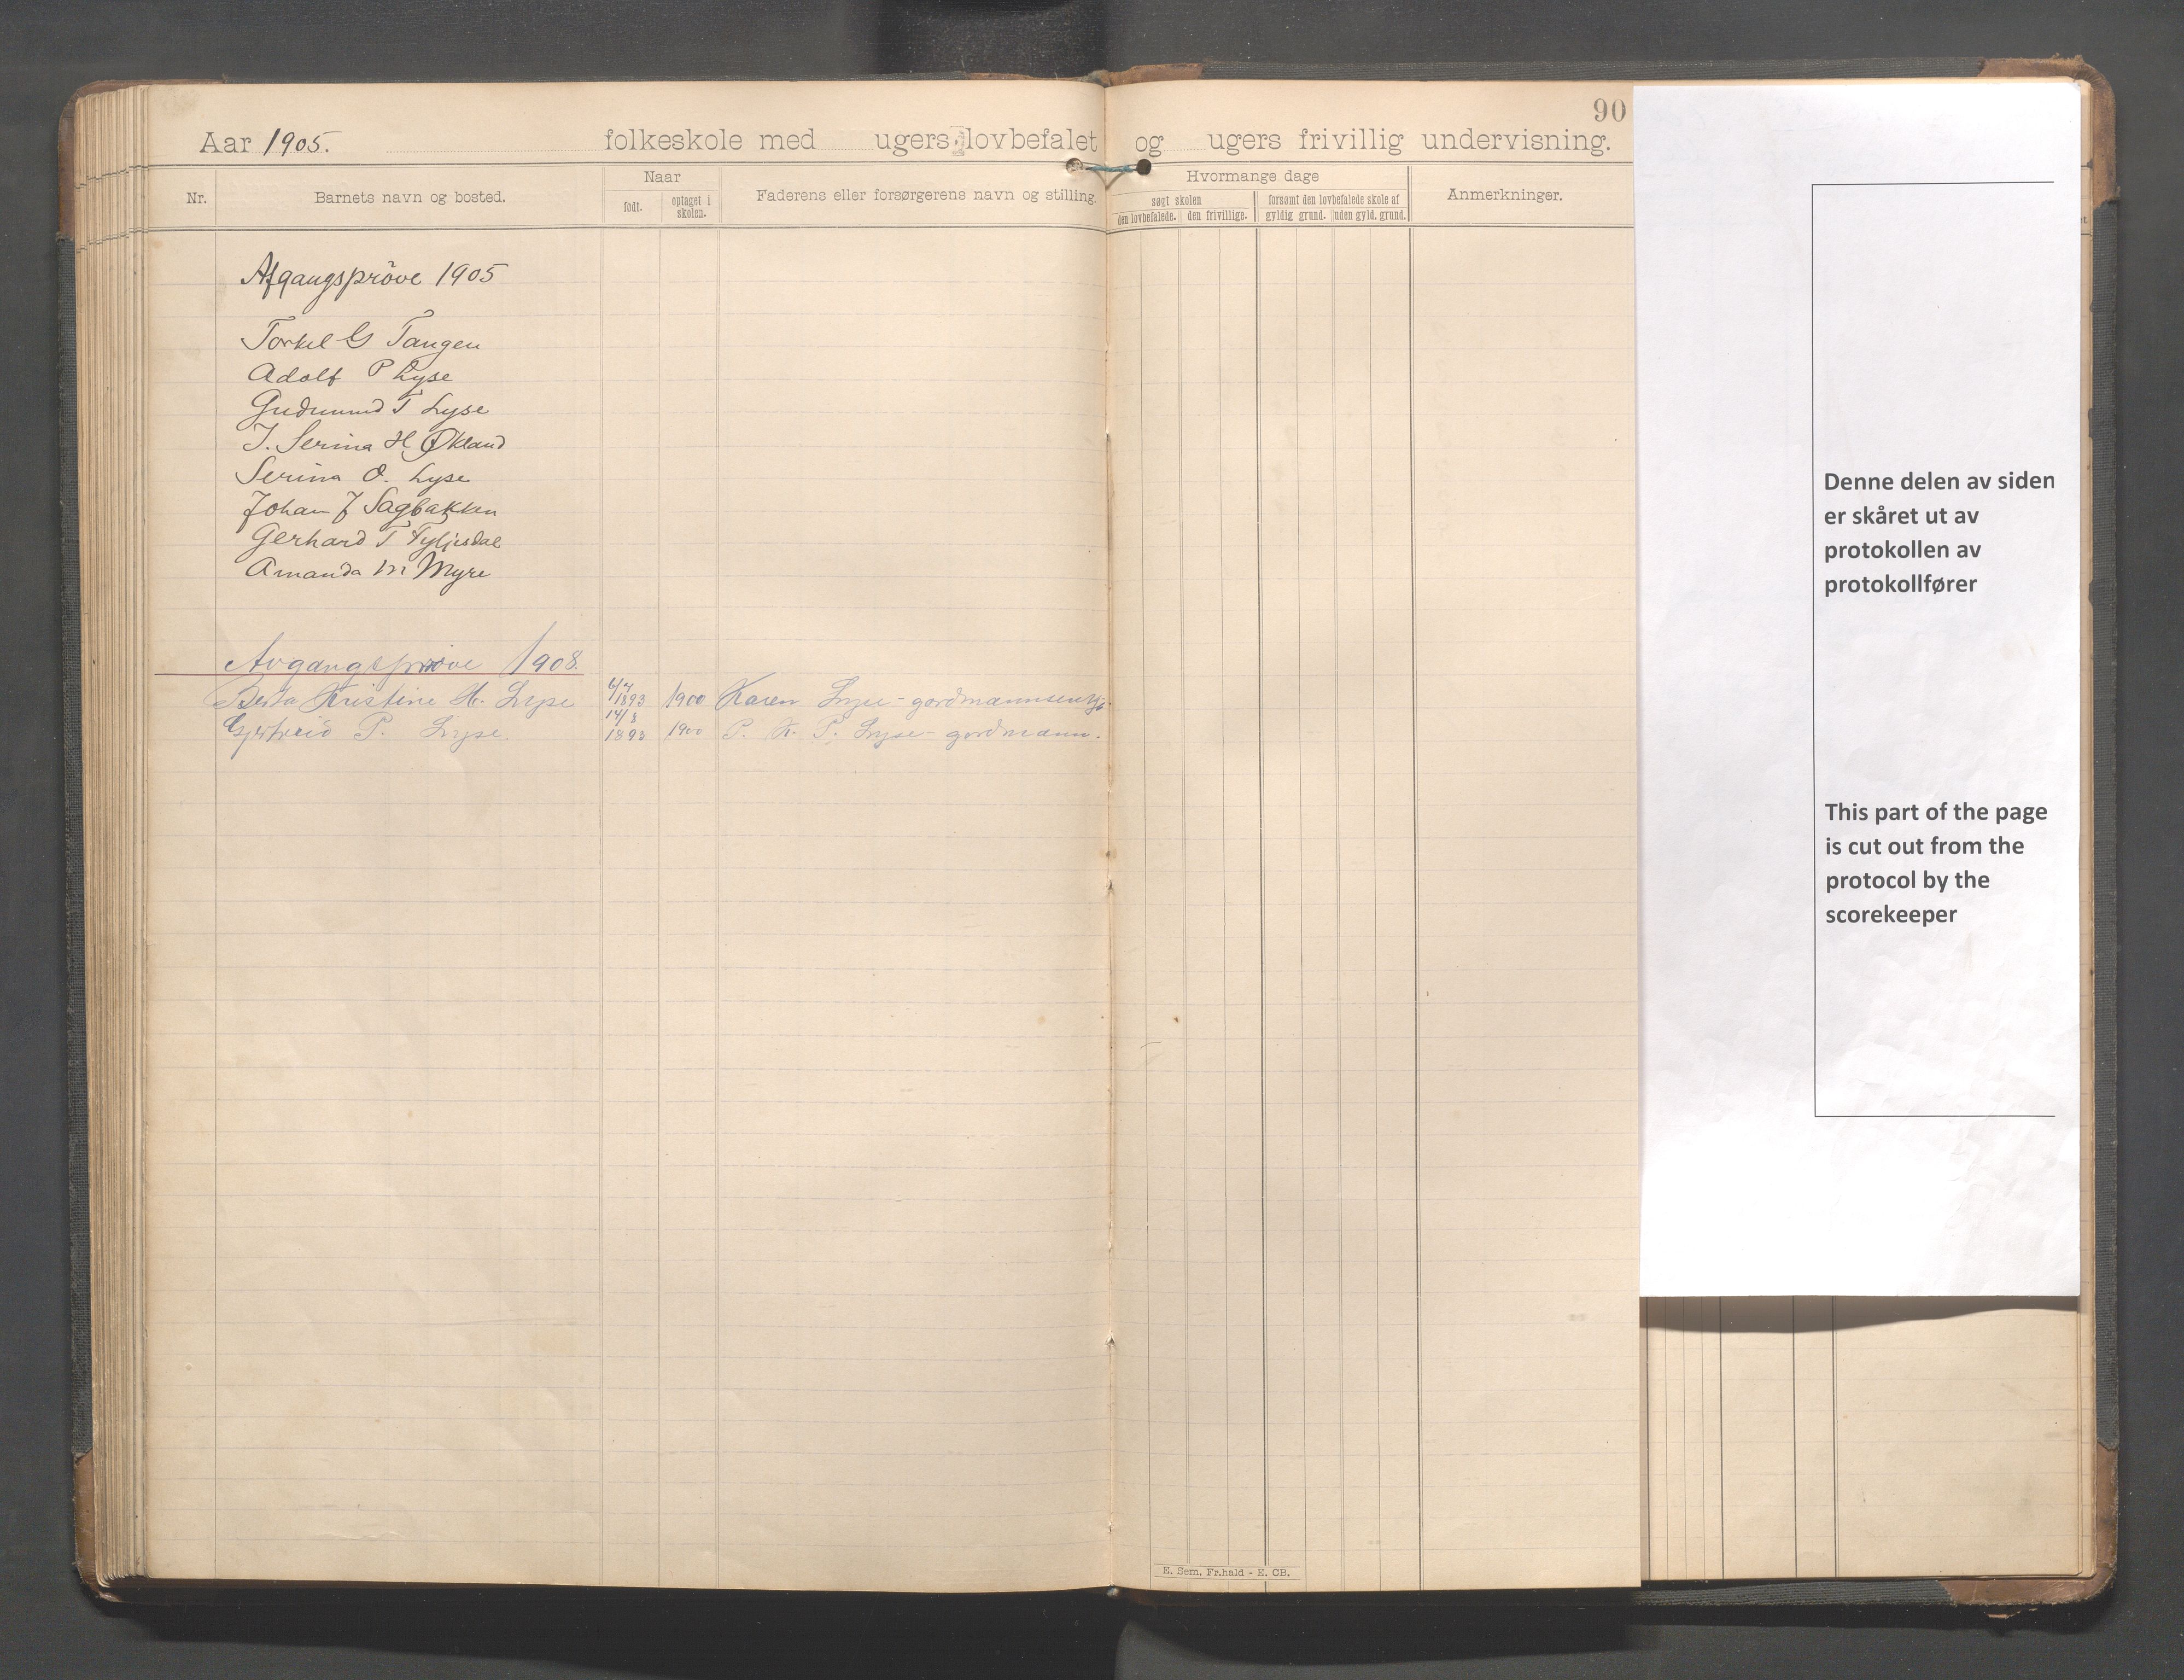 90
Aar 1905. folkeskole med ugers lovbefalet og ugers frivillig undervisning.
Nr. Barnets navn og bosted. Naar Faderens eller forsørgerens navn og stilling. Hvormange dage Anmerkninger.
født. optaget i skolen. søgt skolen forsømt den lovbefalede skole af
den lovbefalede. den frivillige. gyldig grund. uden gyld. grund.
Afgangspröve 1905
Torkel G Tangen
Adolf P Lyse
Gudmund T Lyse
J. Serina H. Økland
Serina O. Lyse
Johan J Sagbakken
Gerhard T Fyljesdal
Amanda M Myre
Avgangsprøve 1908.
Berta Kristine H. Lyse 6/7 1893 1900 Karen Lyse - gardmannsenkje
Gjertreid P. Lyse. 14/8 1893 1900 P. K. P. Lyse - gardmann.
E. Sem, Fr.hald - E. CB.
Denne delen av siden
er skåret ut av
protokollen av
protokollfører
This part of the page
is cut out from the
protocol by the
scorekeeper